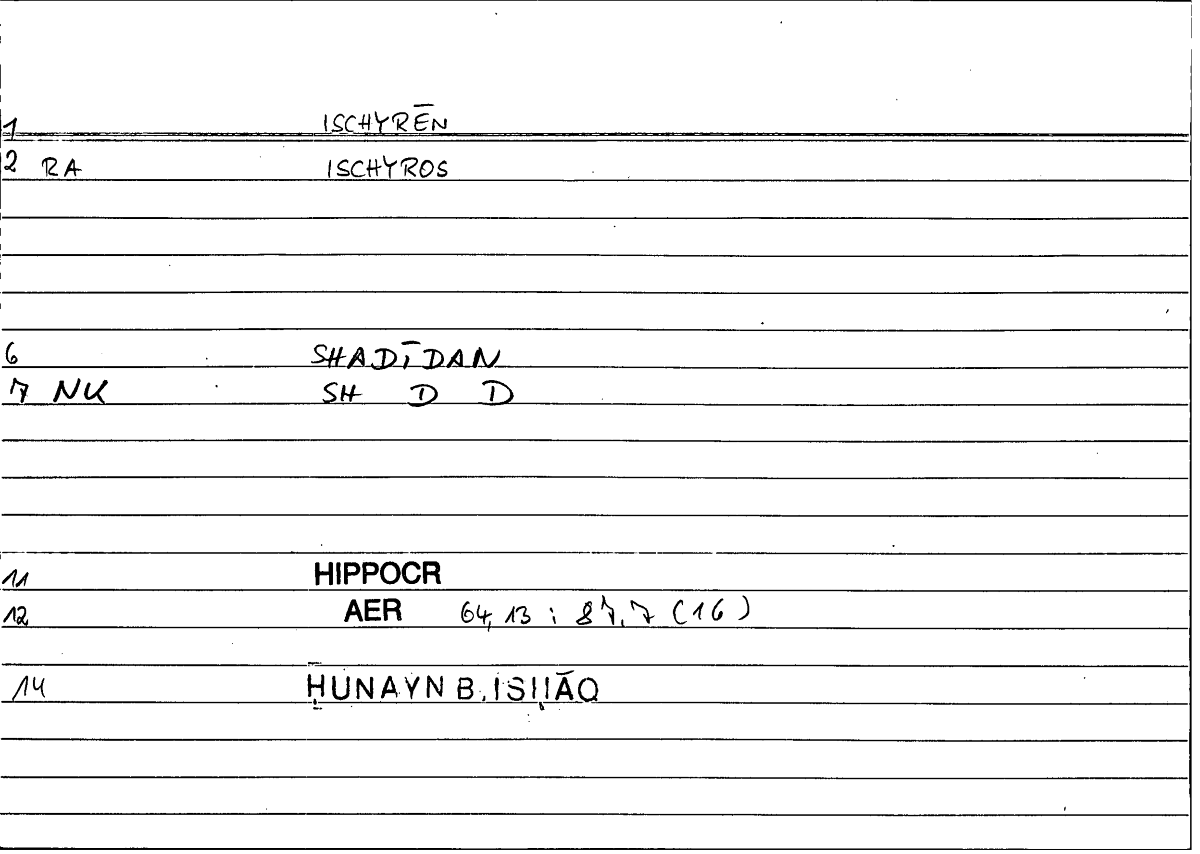 1 ISCHYRĒN
2 RA ISCHYROS
6 SHADĪDAN
7 NK SH D D
11 HIPPOCR
12 AER 64,13 : 87,7 (16)
14 ḤUNAYN B. ISḤĀQ